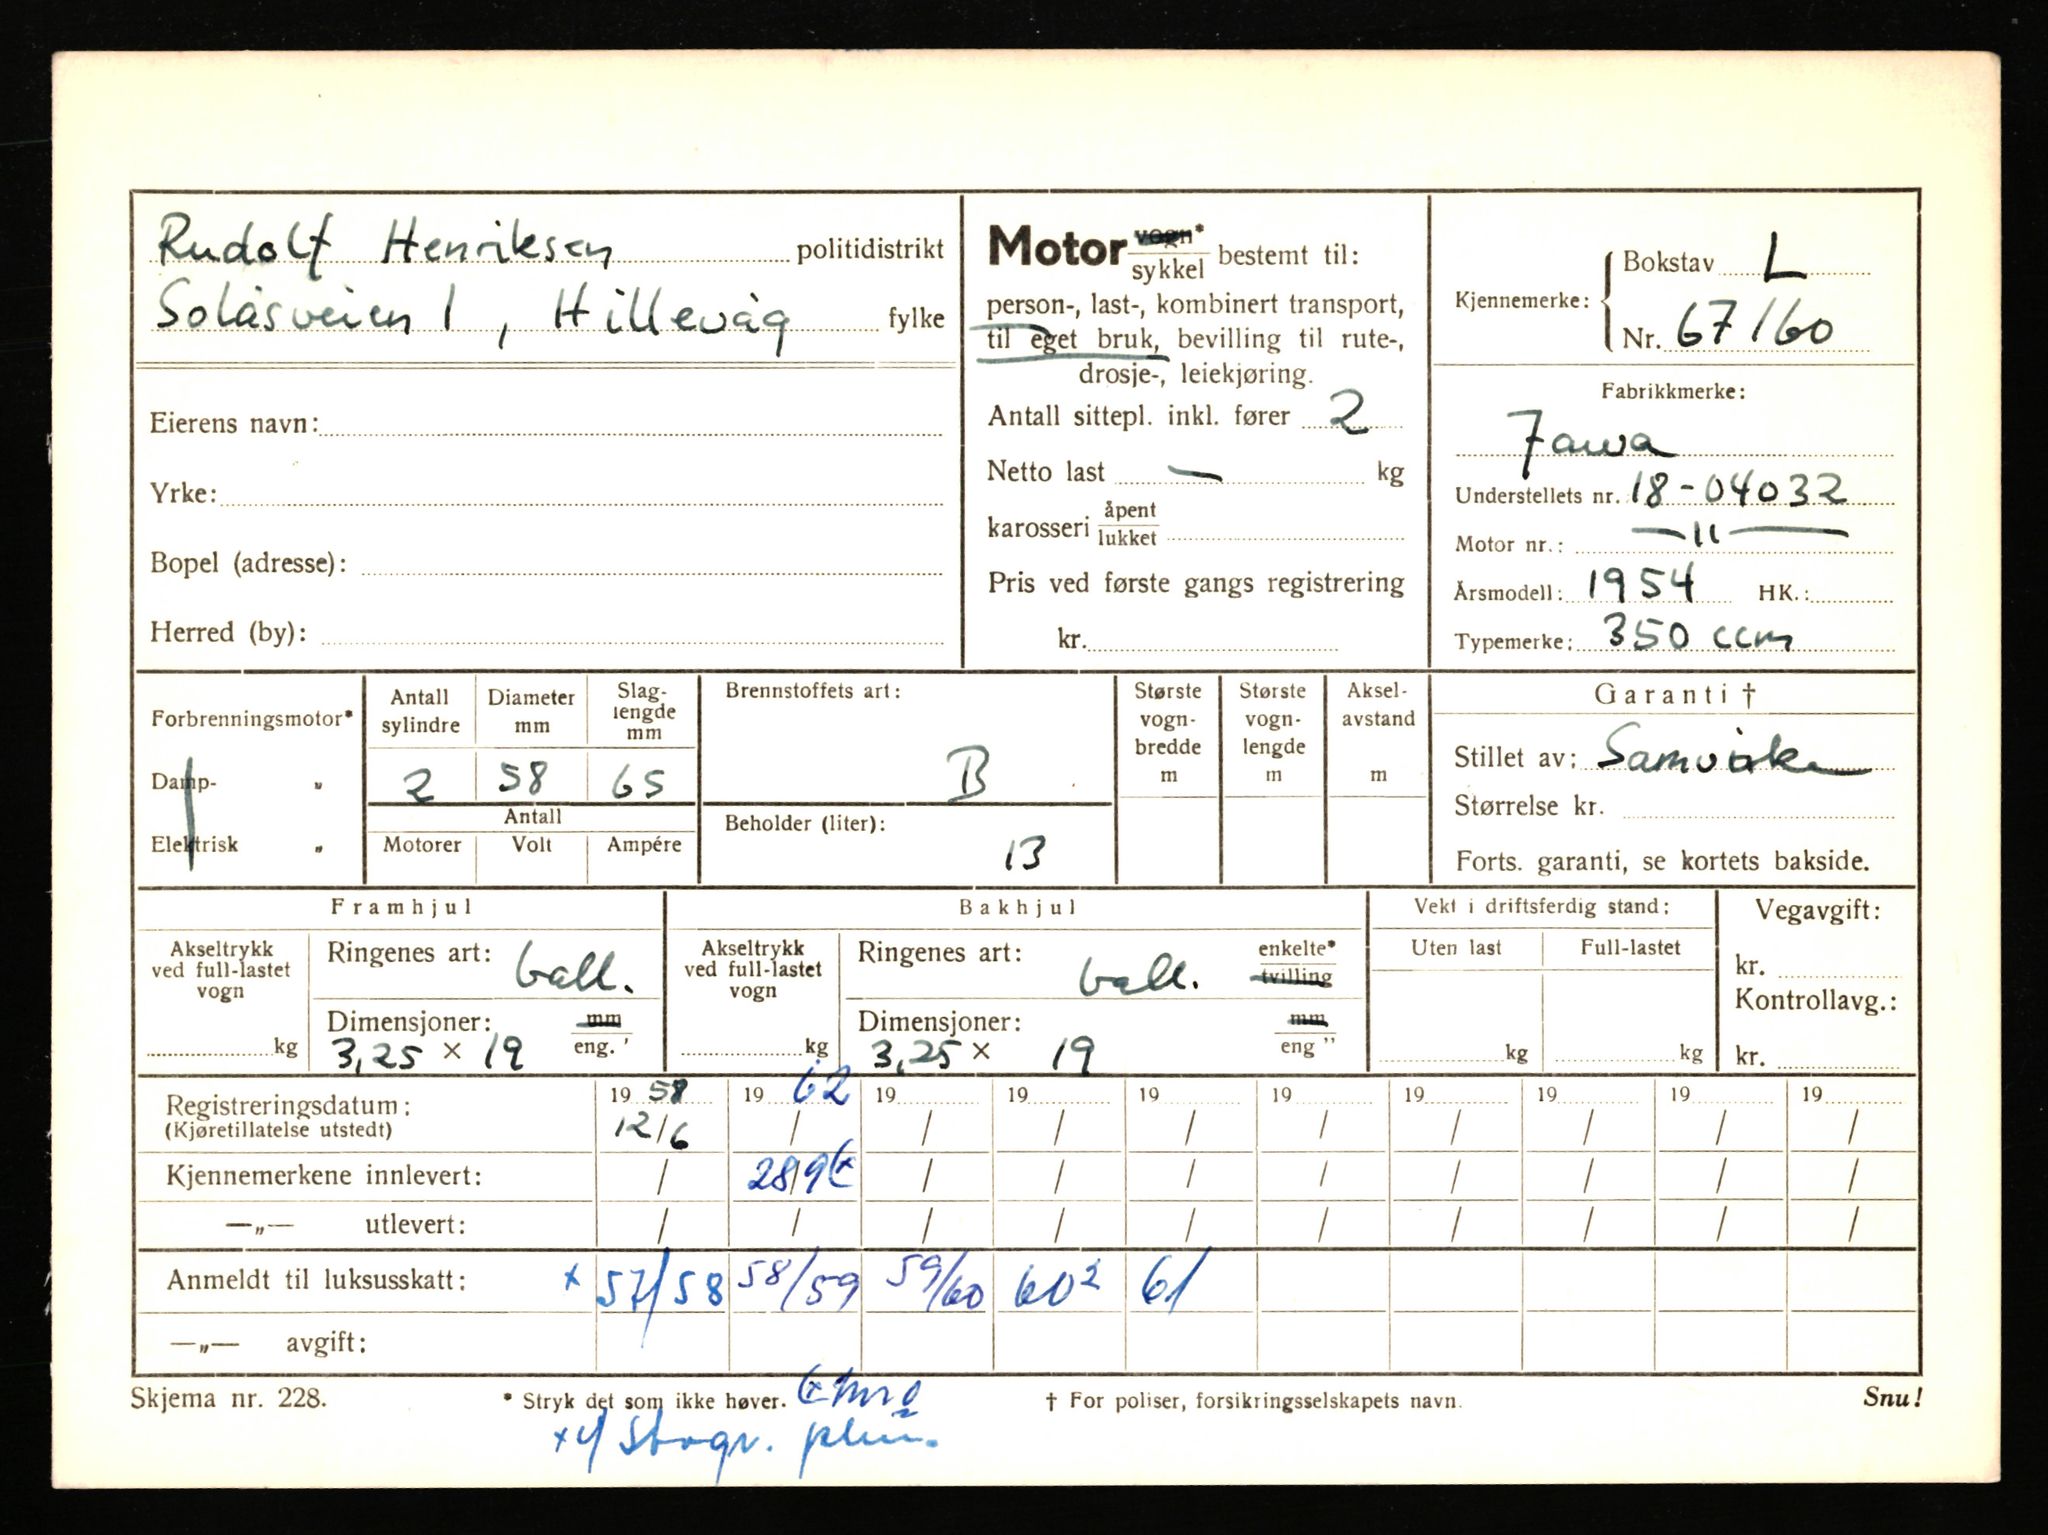 Rudolf Henriksen politidistrikt
Solåsveien 1, Hillevåg fylke
Eierens navn:
Yrke:
Bopel (adresse):
Herred (by):
Motor vogn* sykkel bestemt til:
person-, last-, kombinert transport,
til eget bruk, bevilling til rute-,
drosje-, leiekjøring.
Antall sittepl. inkl. fører 2
Netto last — kg
karosseri åpent lukket
Pris ved første gangs registrering
kr.
Kjennemerke: Bokstav L
Nr. 67160
Fabrikkmerke:
Jawa
Understellets nr. 18-04032
Motor nr.: —11—
Årsmodell: 1954 HK.:
Typemerke: 350 ccm
Forbrenningsmotor*
Damp- „
Elektrisk „
Antall sylindre Diameter mm Slag-lengde mm
2 58 65
Antall
Motorer Volt Ampére
Brennstoffets art:
B
Beholder (liter):
13
Største vogn-bredde m
Største vogn-lengde m
Aksel-avstand m
Garanti †
Stillet av: Samvirke
Størrelse kr.
Forts. garanti, se kortets bakside.
Framhjul
Akseltrykk ved full-lastet vogn
kg
Ringenes art: ball.
Dimensjoner: mm eng. '
3,25 × 19
Bakhjul
Akseltrykk ved full-lastet vogn
kg
Ringenes art: ball. enkelte* tvilling
Dimensjoner: mm eng "
3,25 × 19
Vekt i driftsferdig stand:
Uten last Full-lastet
kg kg
Vegavgift:
kr.
Kontrollavg.:
kr.
Registreringsdatum: 19 58 19 62 19 19 19 19 19 19 19 19
(Kjøretillatelse utstedt) 12/6 / / / / / / / / /
Kjennemerkene innlevert: / 28/9 / / / / / / / /
—„— utlevert: / / / / / / / / / /
Anmeldt til luksusskatt: x 57/58 58/59 59/60 60² 61
—„— avgift:
Skjema nr. 228. * Stryk det som ikke høver. † For poliser, forsikringsselskapets navn. Snu!